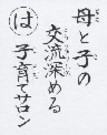 母と子の
交流深める
は 子育てサロン